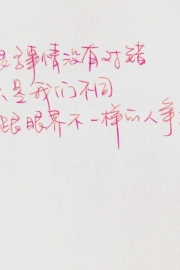 事情没有对错
是我们不同
跟眼界不一样的人争